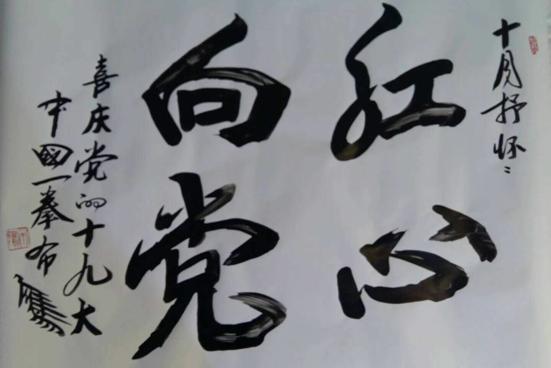 十月抒怀
红心
向党
喜庆党的十九大
中國一拳布鷹